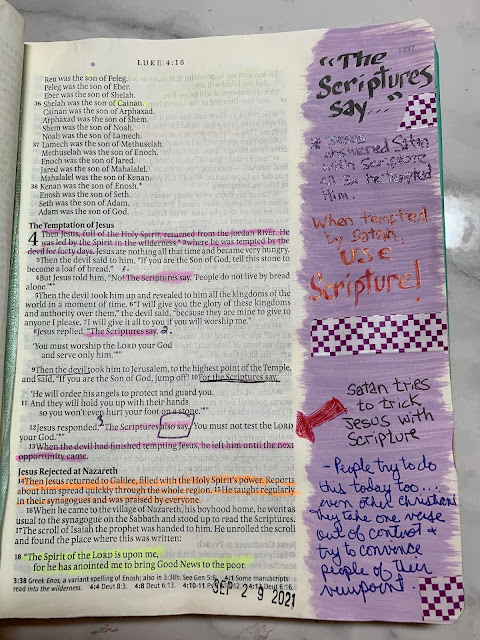 LUKE 4:18
Reu was the son of Peleg.
Peleg was the son of Eber.
Eber was the son of Shelah.
36 Shelah was the son of Cainan.
Cainan was the son of Arphaxad.
Arphaxad was the son of Shem.
Shem was the son of Noah.
Noah was the son of Lamech.
37 Lamech was the son of Methuselah.
Methuselah was the son of Enoch.
Enoch was the son of Jared.
Jared was the son of Mahalalel.
Mahalalel was the son of Kenan.
38 Kenan was the son of Enosh.*
Enosh was the son of Seth.
Seth was the son of Adam.
Adam was the son of God.
The Temptation of Jesus
4 Then Jesus, full of the Holy Spirit, returned from the Jordan River. He
was led by the Spirit in the wilderness,* 2where he was tempted by the
devil for forty days. Jesus ate nothing all that time and became very hungry.
3Then the devil said to him, "If you are the Son of God, tell this stone to
become a loaf of bread."
4But Jesus told him, "No! The Scriptures say, 'People do not live by bread
alone.'*"
5Then the devil took him up and revealed to him all the kingdoms of the
world in a moment of time. 6"I will give you the glory of these kingdoms
and authority over them," the devil said, "because they are mine to give to
anyone I please. 7I will give it all to you if you will worship me."
8Jesus replied, "The Scriptures say,
'You must worship the LORD your God
and serve only him.'*"
9Then the devil took him to Jerusalem, to the highest point of the Temple,
and said, "If you are the Son of God, jump off! 10For the Scriptures say,
'He will order his angels to protect and guard you.
11 And they will hold you up with their hands
so you won't even hurt your foot on a stone.'*"
12Jesus responded, "The Scriptures also say, 'You must not test the LORD
your God.'*"
13When the devil had finished tempting Jesus, he left him until the next
opportunity came.
Jesus Rejected at Nazareth
14Then Jesus returned to Galilee, filled with the Holy Spirit's power. Reports
about him spread quickly through the whole region. 15He taught regularly
in their synagogues and was praised by everyone.
16When he came to the village of Nazareth, his boyhood home, he went as
usual to the synagogue on the Sabbath and stood up to read the Scriptures.
17The scroll of Isaiah the prophet was handed to him. He unrolled the scroll
and found the place where this was written:
18 "The Spirit of the LORD is upon me,
for he has anointed me to bring Good News to the poor.
3:38 Greek Enos, a variant spelling of Enosh; also in 3:38b. See Gen 5:6. 4:1 Some manuscripts
read into the wilderness. 4:4 Deut 8:3. 4:8 Deut 6:13. 4:10-11 4:12 Deut 6:16.
SEP 29 2021
"The
Scriptures
say..."
Jesus
answered Satan
with Scripture
as he tempted
Him.
When tempted
by Satan,
USE
Scripture!
Satan tries
to trick
Jesus with
Scripture
- People try to do
this today too...
even other Christians
They take one verse
out of context +
try to convince
people of their
viewpoint.